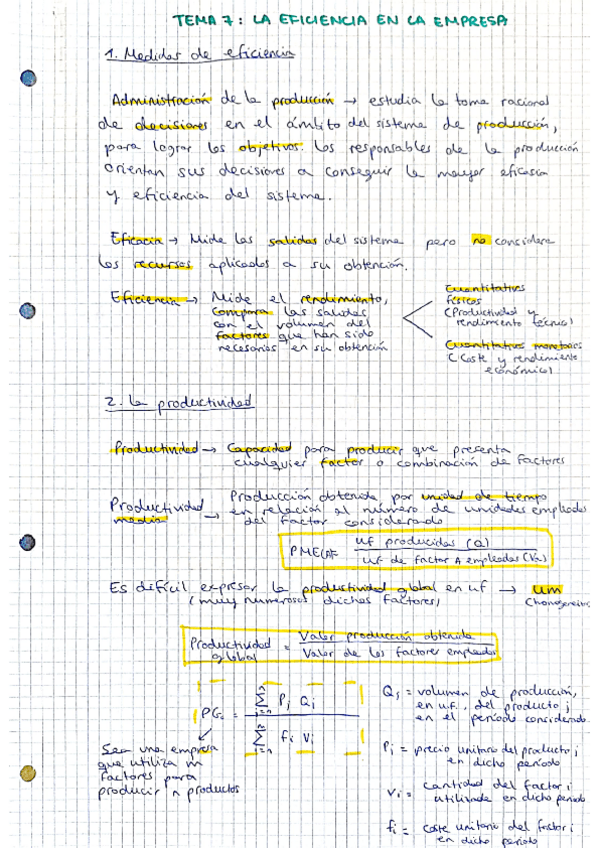 TEMA 7: LA EFICIENCIA EN LA EMPRESA
1. Medidas de eficiencia
Administración de la producción → estudia la toma racional
de decisiones en el ámbito del sistema de producción,
para lograr los objetivos. Los responsables de la producción
orientan sus decisiones a conseguir la mayor eficacia
y eficiencia del sistema.
Eficacia → Mide las salidas del sistema pero no considera
los recursos aplicados a su obtención.
Eficiencia → Mide el rendimiento,
compara las salidas
con el volumen del
factores que han sido
necesarios en su obtención
Cuantitativas
físicas
(Productividad y
rendimiento técnico)
Cuantitativas monetarias
(Coste y rendimiento
económico)
2. La productividad
Productividad → Capacidad para producir que presenta
cualquier factor o combinación de factores
Productividad media → Producción obtenida por unidad de tiempo
en relación al número de unidades empleadas
del factor considerado
PME(A)= uf producidas (Q)
uf de factor A empleadas (Va)
Es difícil expresar la productividad global en uf → um
(muy numerosos dichos factores)
Productividad global = Valor producción obtenida
Valor de los factores empleados
PG = Σ Pj Qj
Σ fi Vi
Sea una empresa
que utiliza m
factores para
producir n productos
Qj = volumen de producción,
en u.f., del producto j
en el período considerado
Pj = precio unitario del producto j
en dicho período
Vi = cantidad del factor i
utilizada en dicho período
fi = coste unitario del factor i
en dicho período